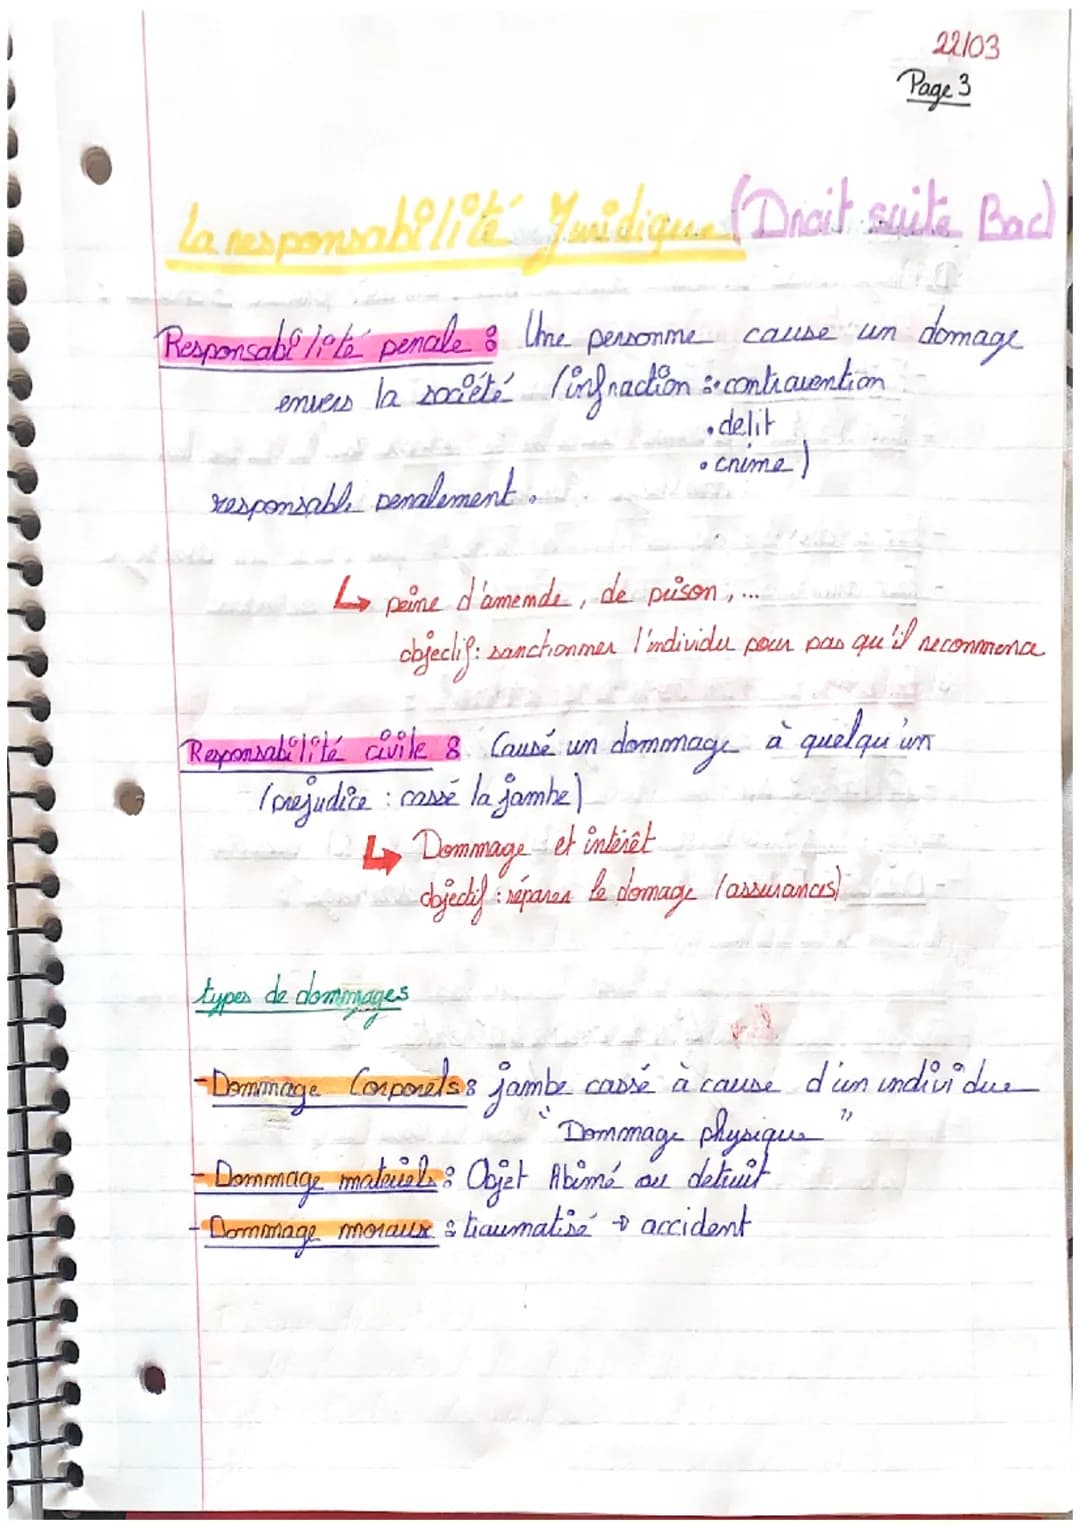 22/03
Page 3
La responsabilité Juridique (Droit suite Bac)
Responsabilité penale : Une personne cause un domage
envers la société (infraction : • contravention
• delit
• crime)
responsable penalement.
↳ peine d'amende, de prison, ...
objectif : sanctionner l'individu pour pas qu'il recommence
Responsabilité civile : Causé un dommage à quelqu'un
(prejudice : cassé la jambe)
↳ Dommage et intérêt
objectif : réparer le domage (assurances)
types de dommages
- Dommage Corporels : jambe cassé à cause d'un individue
"Dommage physique"
- Dommage materiels : Objet Abimé ou detruit
- Dommage moraux : traumatisé → accident